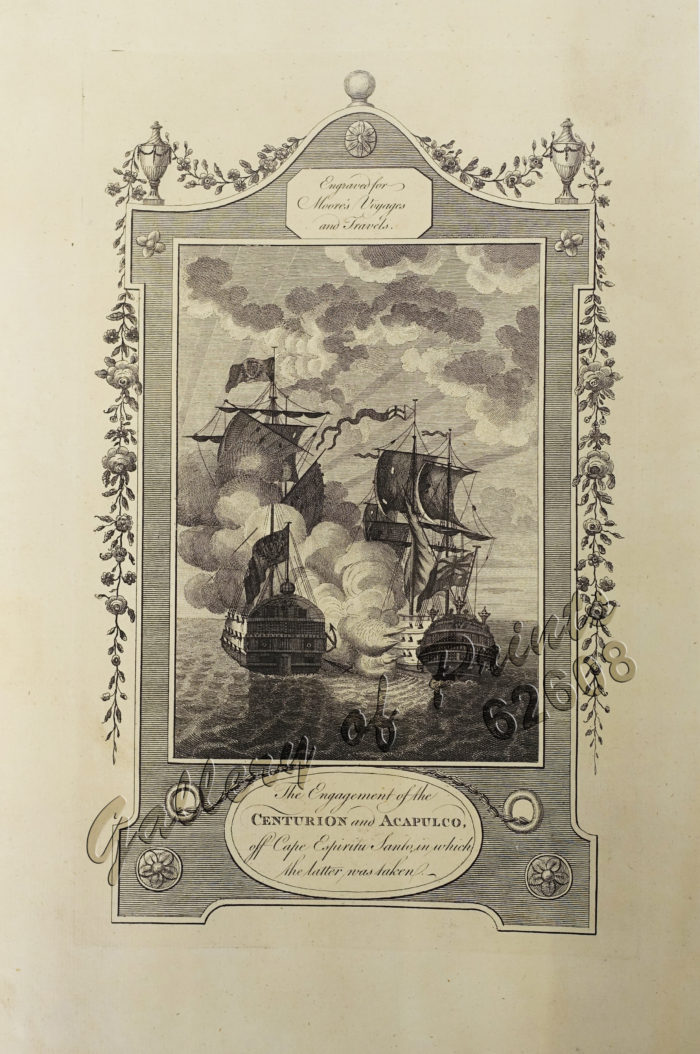 Engraved for
Moore's Voyages
and Travels.
The Engagement of the
CENTURION and ACAPULCO,
off Cape Espiritu Santo, in which
the latter was taken.
Gallery of Prints
62608